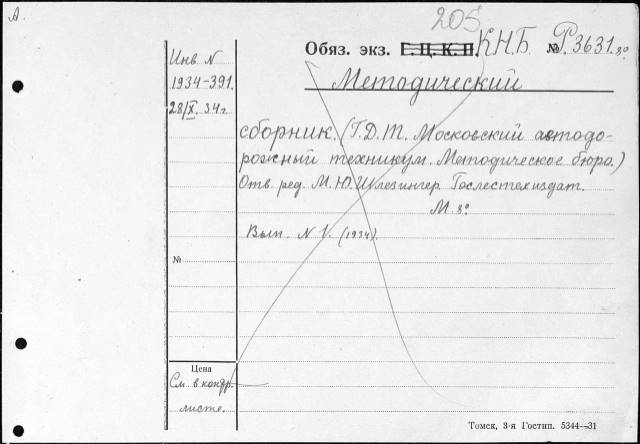 А.
205
Обяз. экз. Г. Ц. К. П. К.Н.Б. № Р3631. 8°
Инв. N
1934-391.
28/X. 34г
Методический
сборник. (Г.Д.Т. Московский автодо-
рожный техникум. Методическое бюро.)
Отв. ред. М. Ю. Шлезингер. Гослестехиздат.
М. 8°
Вып. N 1. (1934).
№
Цена
См. в контр.
листе.
Томск, 3-я Гостип. 5344—31